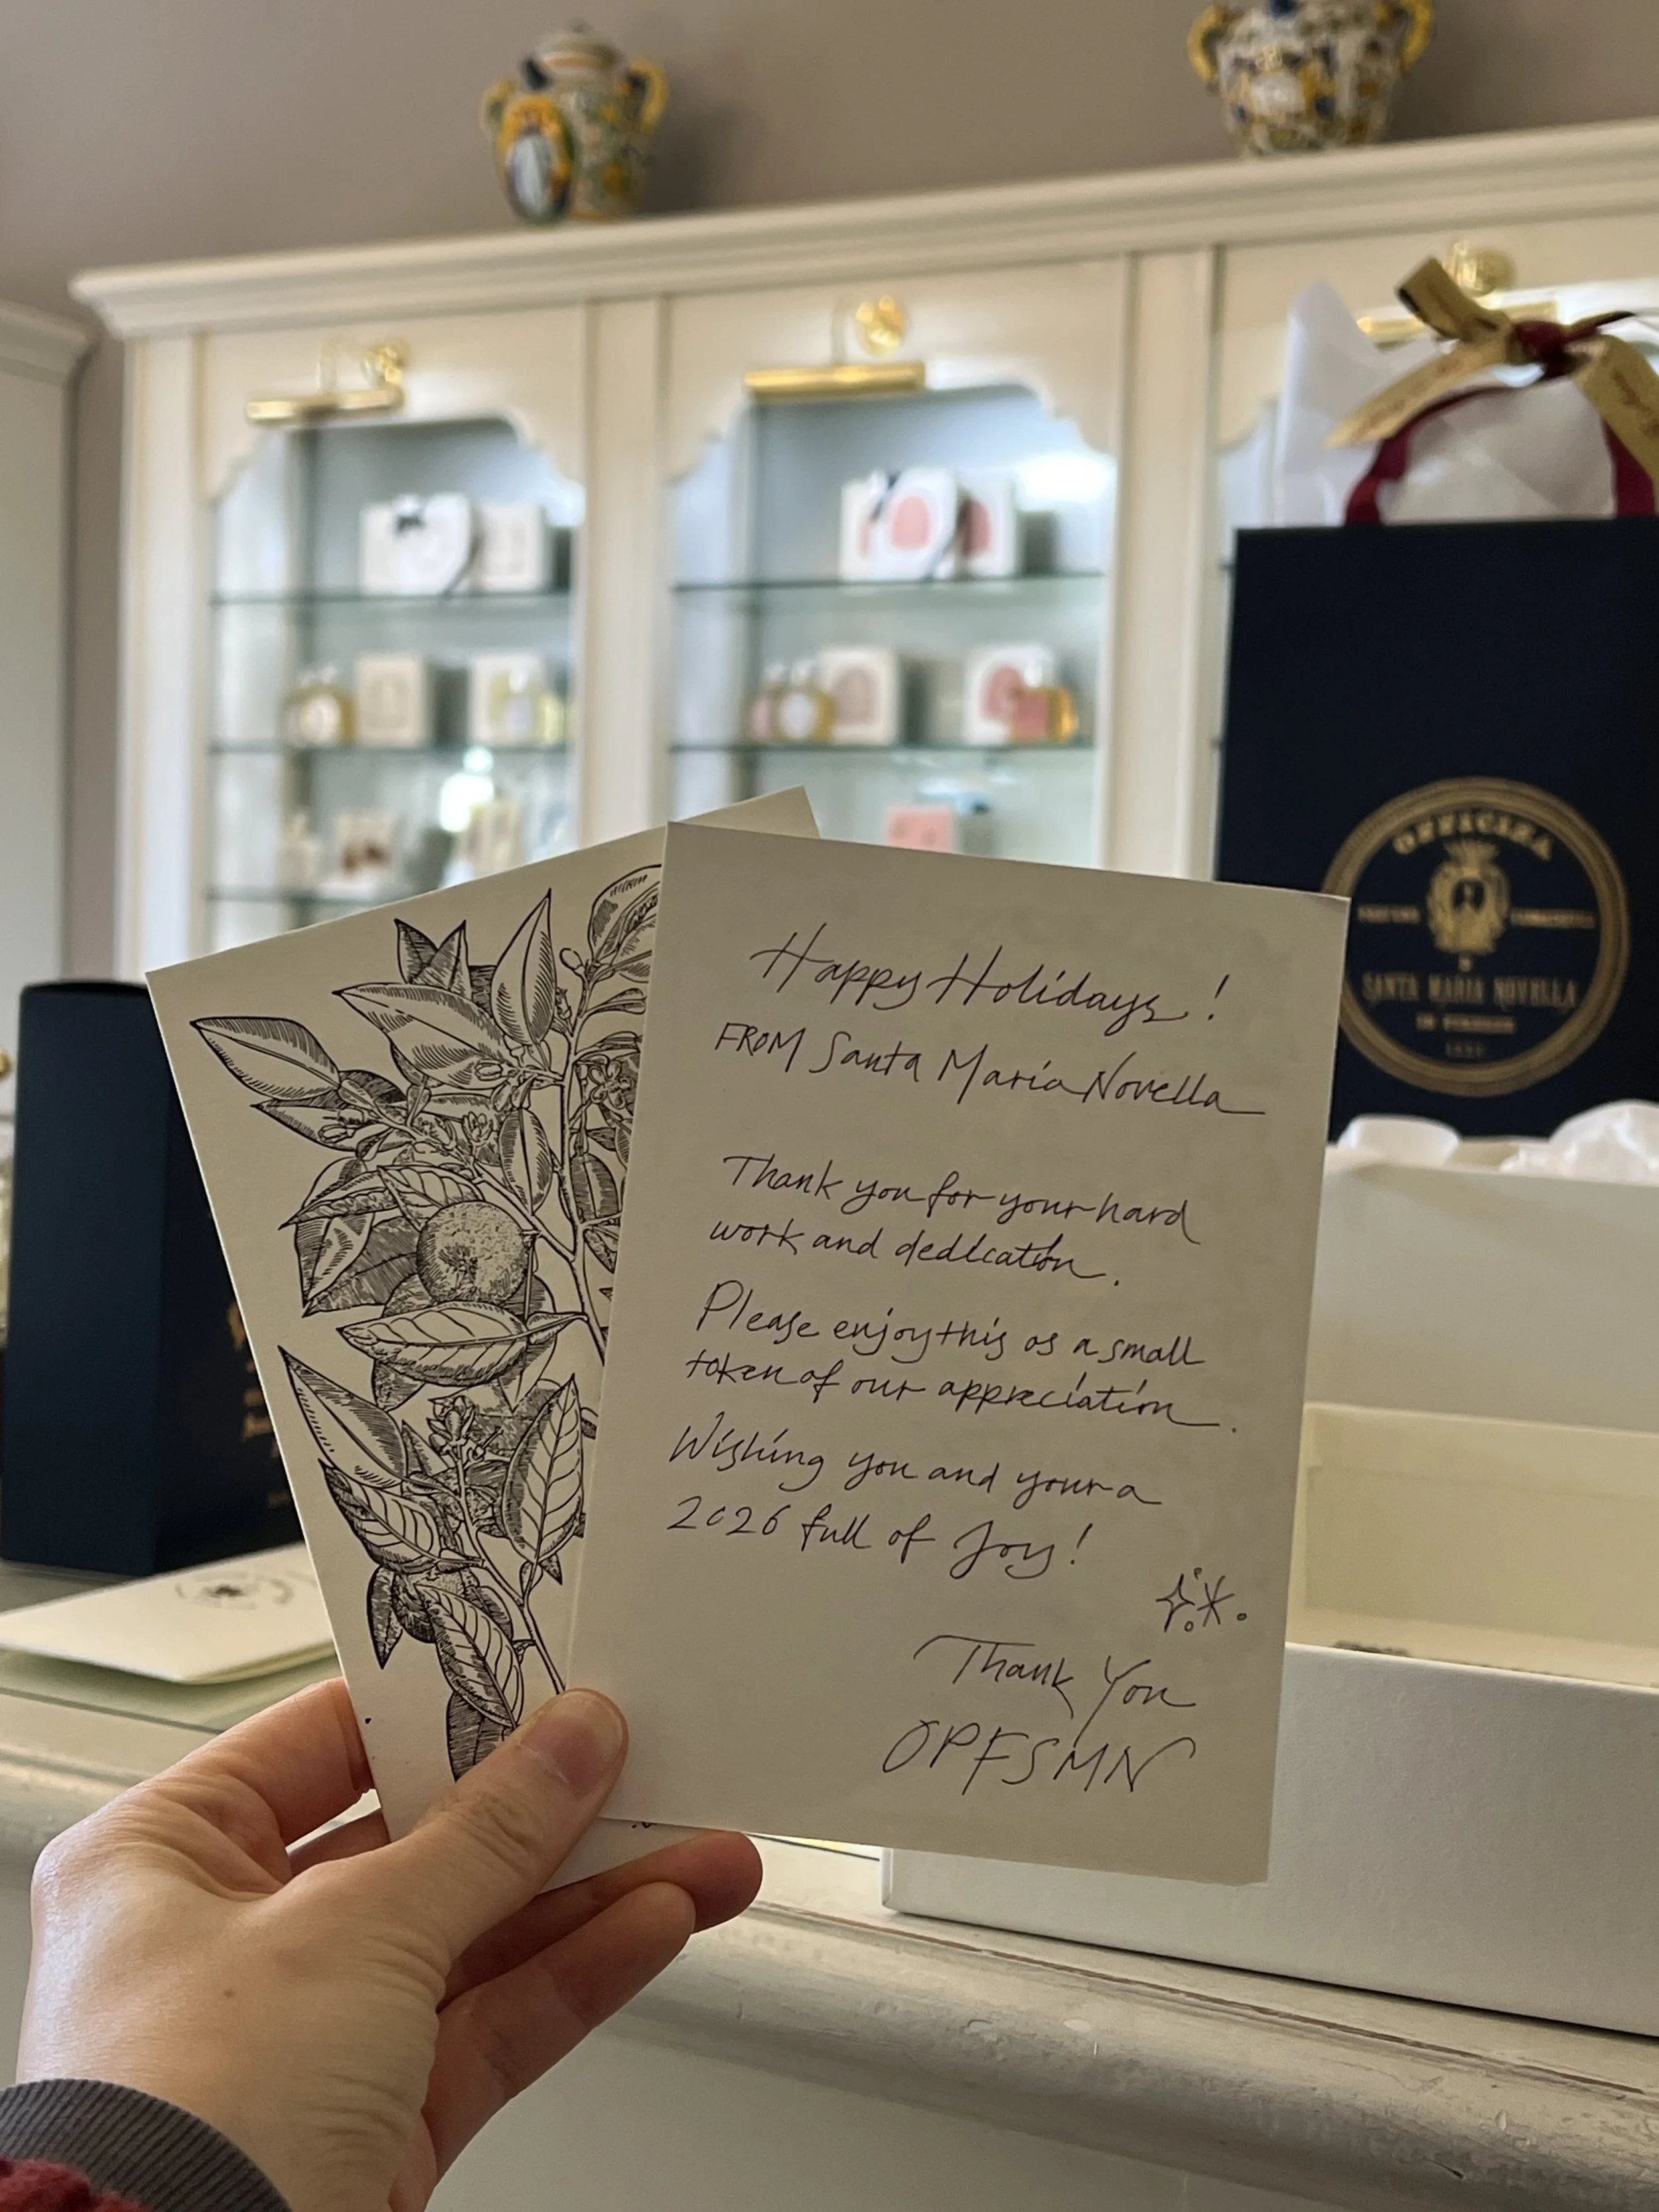 Happy Holidays!
FROM Santa Maria Novella
Thank you for your hard
work and dedication.
Please enjoy this as a small
token of our appreciation.
Wishing you and your a
2026 full of Joy!
Thank You
OPFSMN
OFFICINA
SANTA MARIA NOVELLA